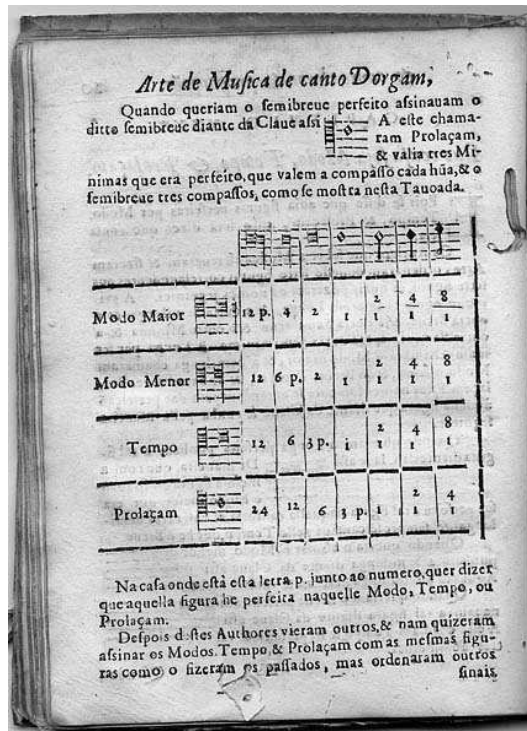 Arte de Musica de canto Dorgam,
Quando queriam o semibreue perfeito assinauam o
ditto semibreue diante da Claue assi A este chama-
ram Prolaçam,
& valia tres Mi-
nimas que era perfeito, que valem a compasso cada hũa, & o
semibreue tres compassos, como se mostra nesta Tauoada.
Modo Maior 12 p. 4 2 1 2 1 4 1 8 1
Modo Menor 12 6 p. 2 1 2 1 4 1 8 1
Tempo 12 6 3 p. i 2 1 4 1 8 1
Prolaçam 24 12 6 3 p. 1 2 1 4 1
Na casa onde està esta letra p. junto ao numero, quer dizer
que aquella figura he perfeita naquelle Modo, Tempo, ou
Prolaçam.
Despois destes Authores vieram outros, & nam quizeram
assinar os Modos. Tempo, & Prolaçam com as mesmas figu-
ras como o fizeram os passados, mas ordenaram outros
sinais